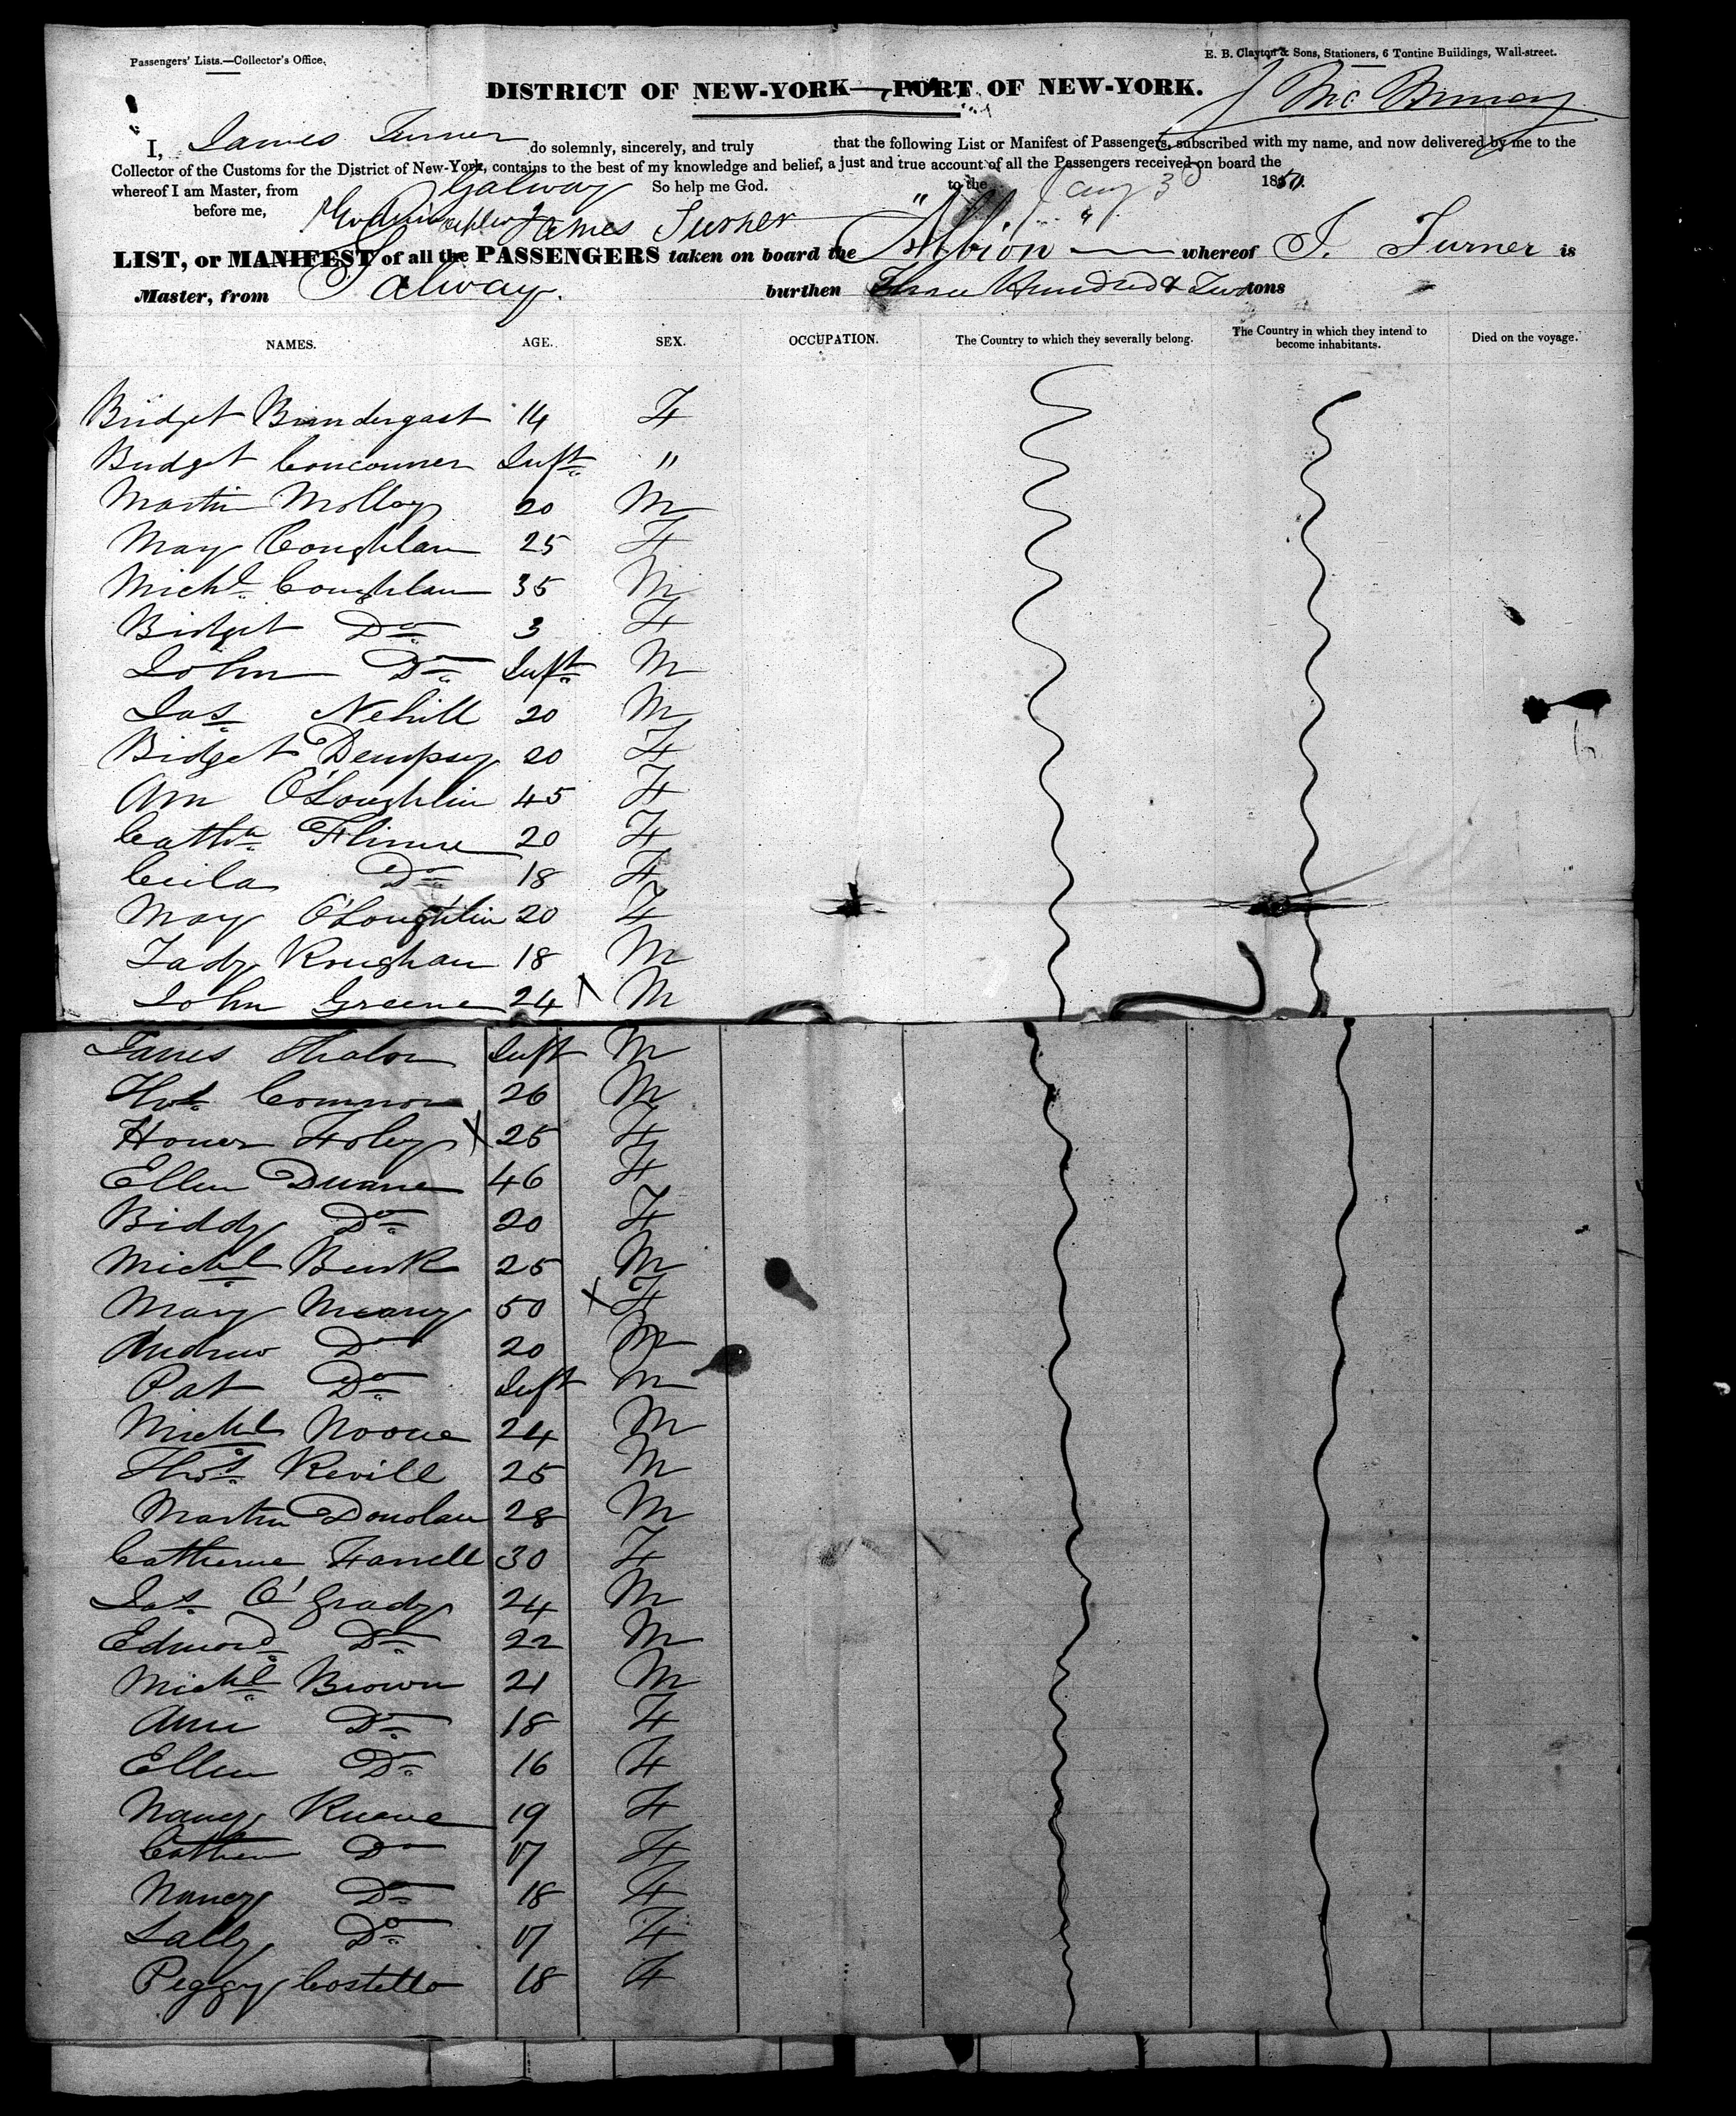 Passengers' Lists.—Collector's Office.
E. B. Clayton & Sons, Stationers, 6 Tontine Buildings, Wall-street.
DISTRICT OF NEW-YORK—PORT OF NEW-YORK.
I, James Turner do solemnly, sincerely, and truly that the following List or Manifest of Passengers, subscribed with my name, and now delivered by me to the
Collector of the Customs for the District of New-York, contains to the best of my knowledge and belief, a just and true account of all the Passengers received on board the
whereof I am Master, from Galway So help me God. to the Aug 3d 1850.
before me, James Turner
LIST, or MANIFEST of all the PASSENGERS taken on board the Albion whereof J. Turner is
Master, from Galway. burthen Three Hundred & Two tons
NAMES. AGE. SEX. OCCUPATION. The Country to which they severally belong. The Country in which they intend to become inhabitants. Died on the voyage.
Bridget 14 F
Bridget Concannen Inft "
Martin Molloy 20 M
Mary Coughlan 25 F
Michl Coughlan 35 M
Bidget Do 3 F
John Do Inft M
Jas Nehill 20 M
Bidget Dempsey 20 F
Ann O'Loughlin 45 F
Catha 20 F
Ceila Do 18 F
Mary O'Loughlin 20 F
Roughan 18 M
John Greene 24 X M
James Inft M
Thos Common 26 M
Honer Foley X 25 F
Ellen Duane 46 F
Biddy Do 20 F
Michl Burk 25 M
Mary Meany 50 X F
Andrew Do 20 M
Pat Do Inft M
Michl Noone 24 M
Thos Revill 25 M
Martin Donolan 28 M
Catherine Farrell 30 F
Jas O'Grady 24 M
Edmond Do 22 M
Michl Brown 21 M
Ann Do 18 F
Ellen Do 16 F
Nancy Ruane 19 F
Cathern Do 17 F
Nancy Do 18 F
Sally Do 17 F
Peggy Costello 18 F